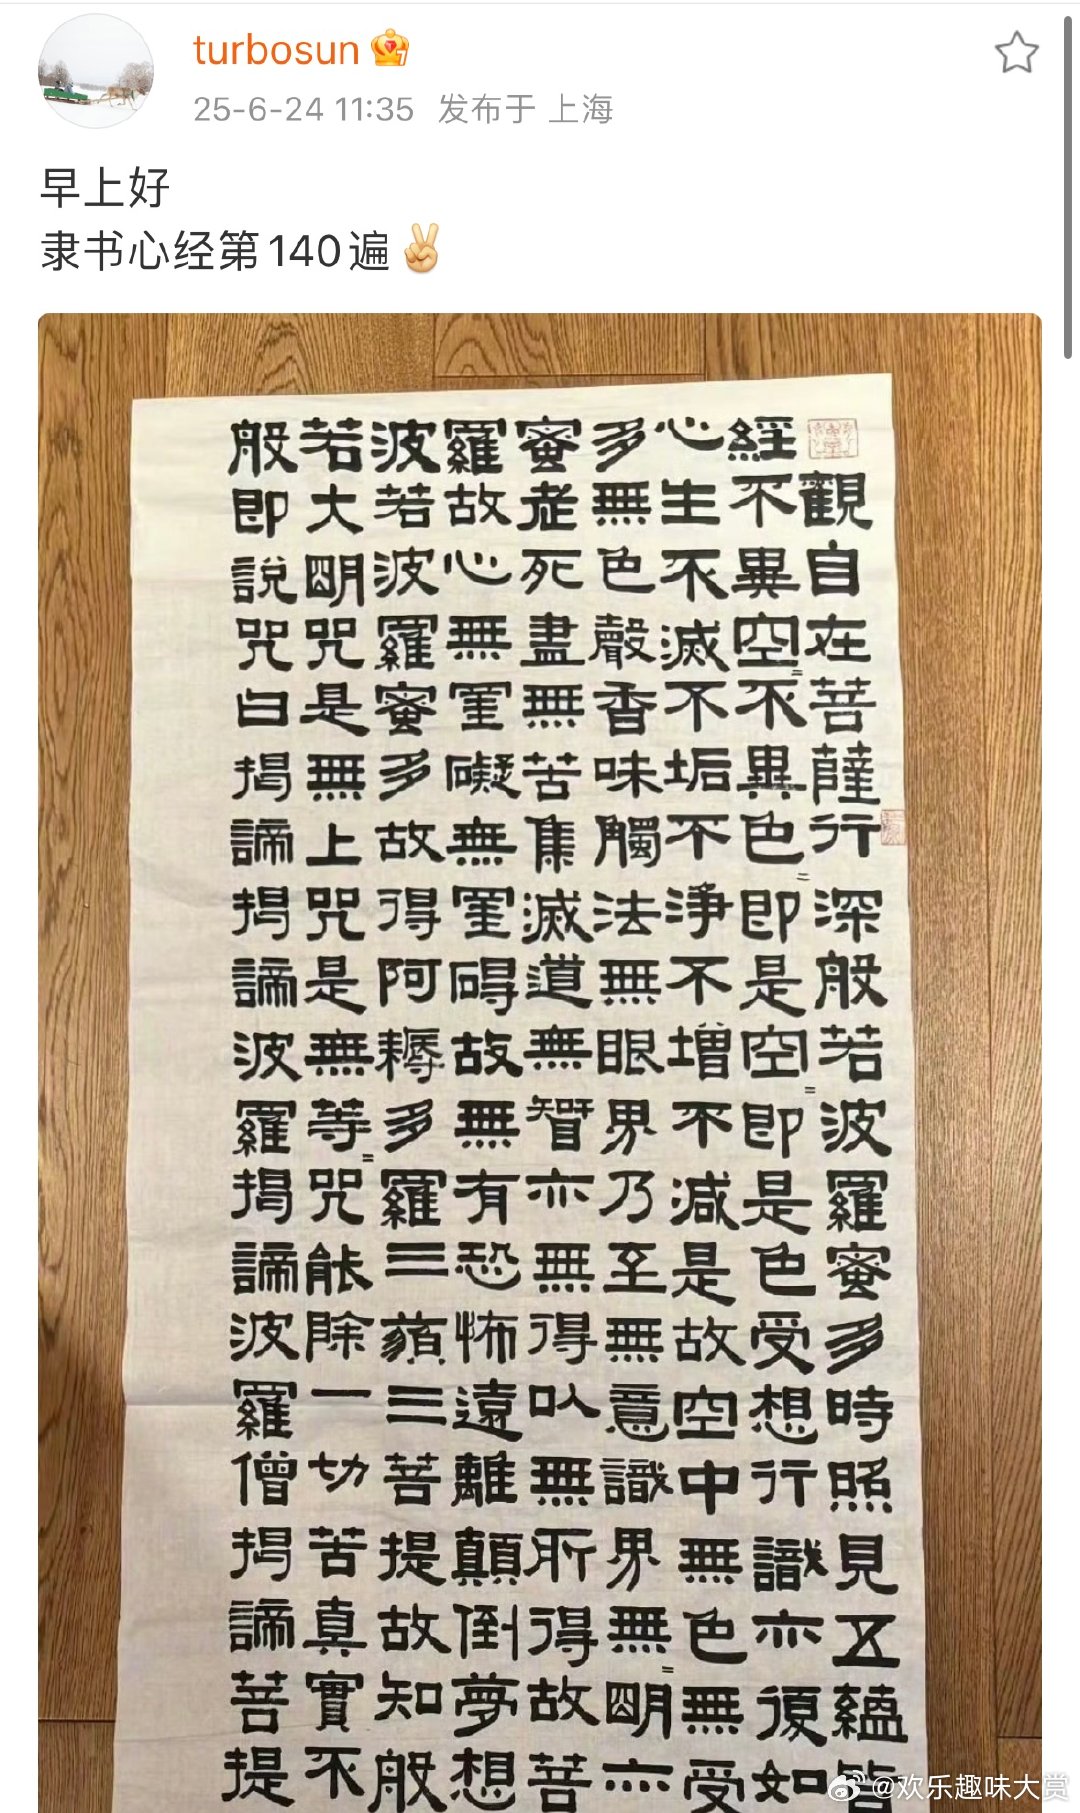 turbosun
25-6-24 11:35 发布于 上海
早上好
隶书心经第140遍✌🏻
般若波羅蜜多心經
觀自在菩薩行深般若波羅蜜多時照見五蘊皆
不異空=不異色=即是空=即是色受想行識亦復如
生不滅不垢不淨不增不減是故空中無色無受
無色聲香味觸法無眼界乃至無意識界無=明亦
老死盡無苦集滅道無智亦無得以無所得故菩
故心無罣礙無罣碍故無有恐怖遠離顛倒夢想
若波羅蜜多故得阿耨多羅三藐三菩提故知般
大明咒是無上咒是無等=咒能除一切苦真實不
即說咒曰揭諦揭諦波羅揭諦波羅僧揭諦菩提
@欢乐趣味大赏